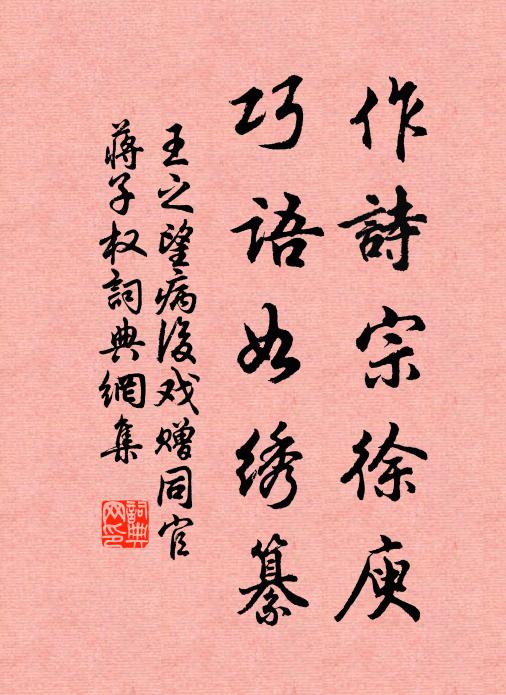 作詩宗徐庾
巧語如綉纂
王之望病後戏赠同官
蔣子权詞典網集
詞典网印